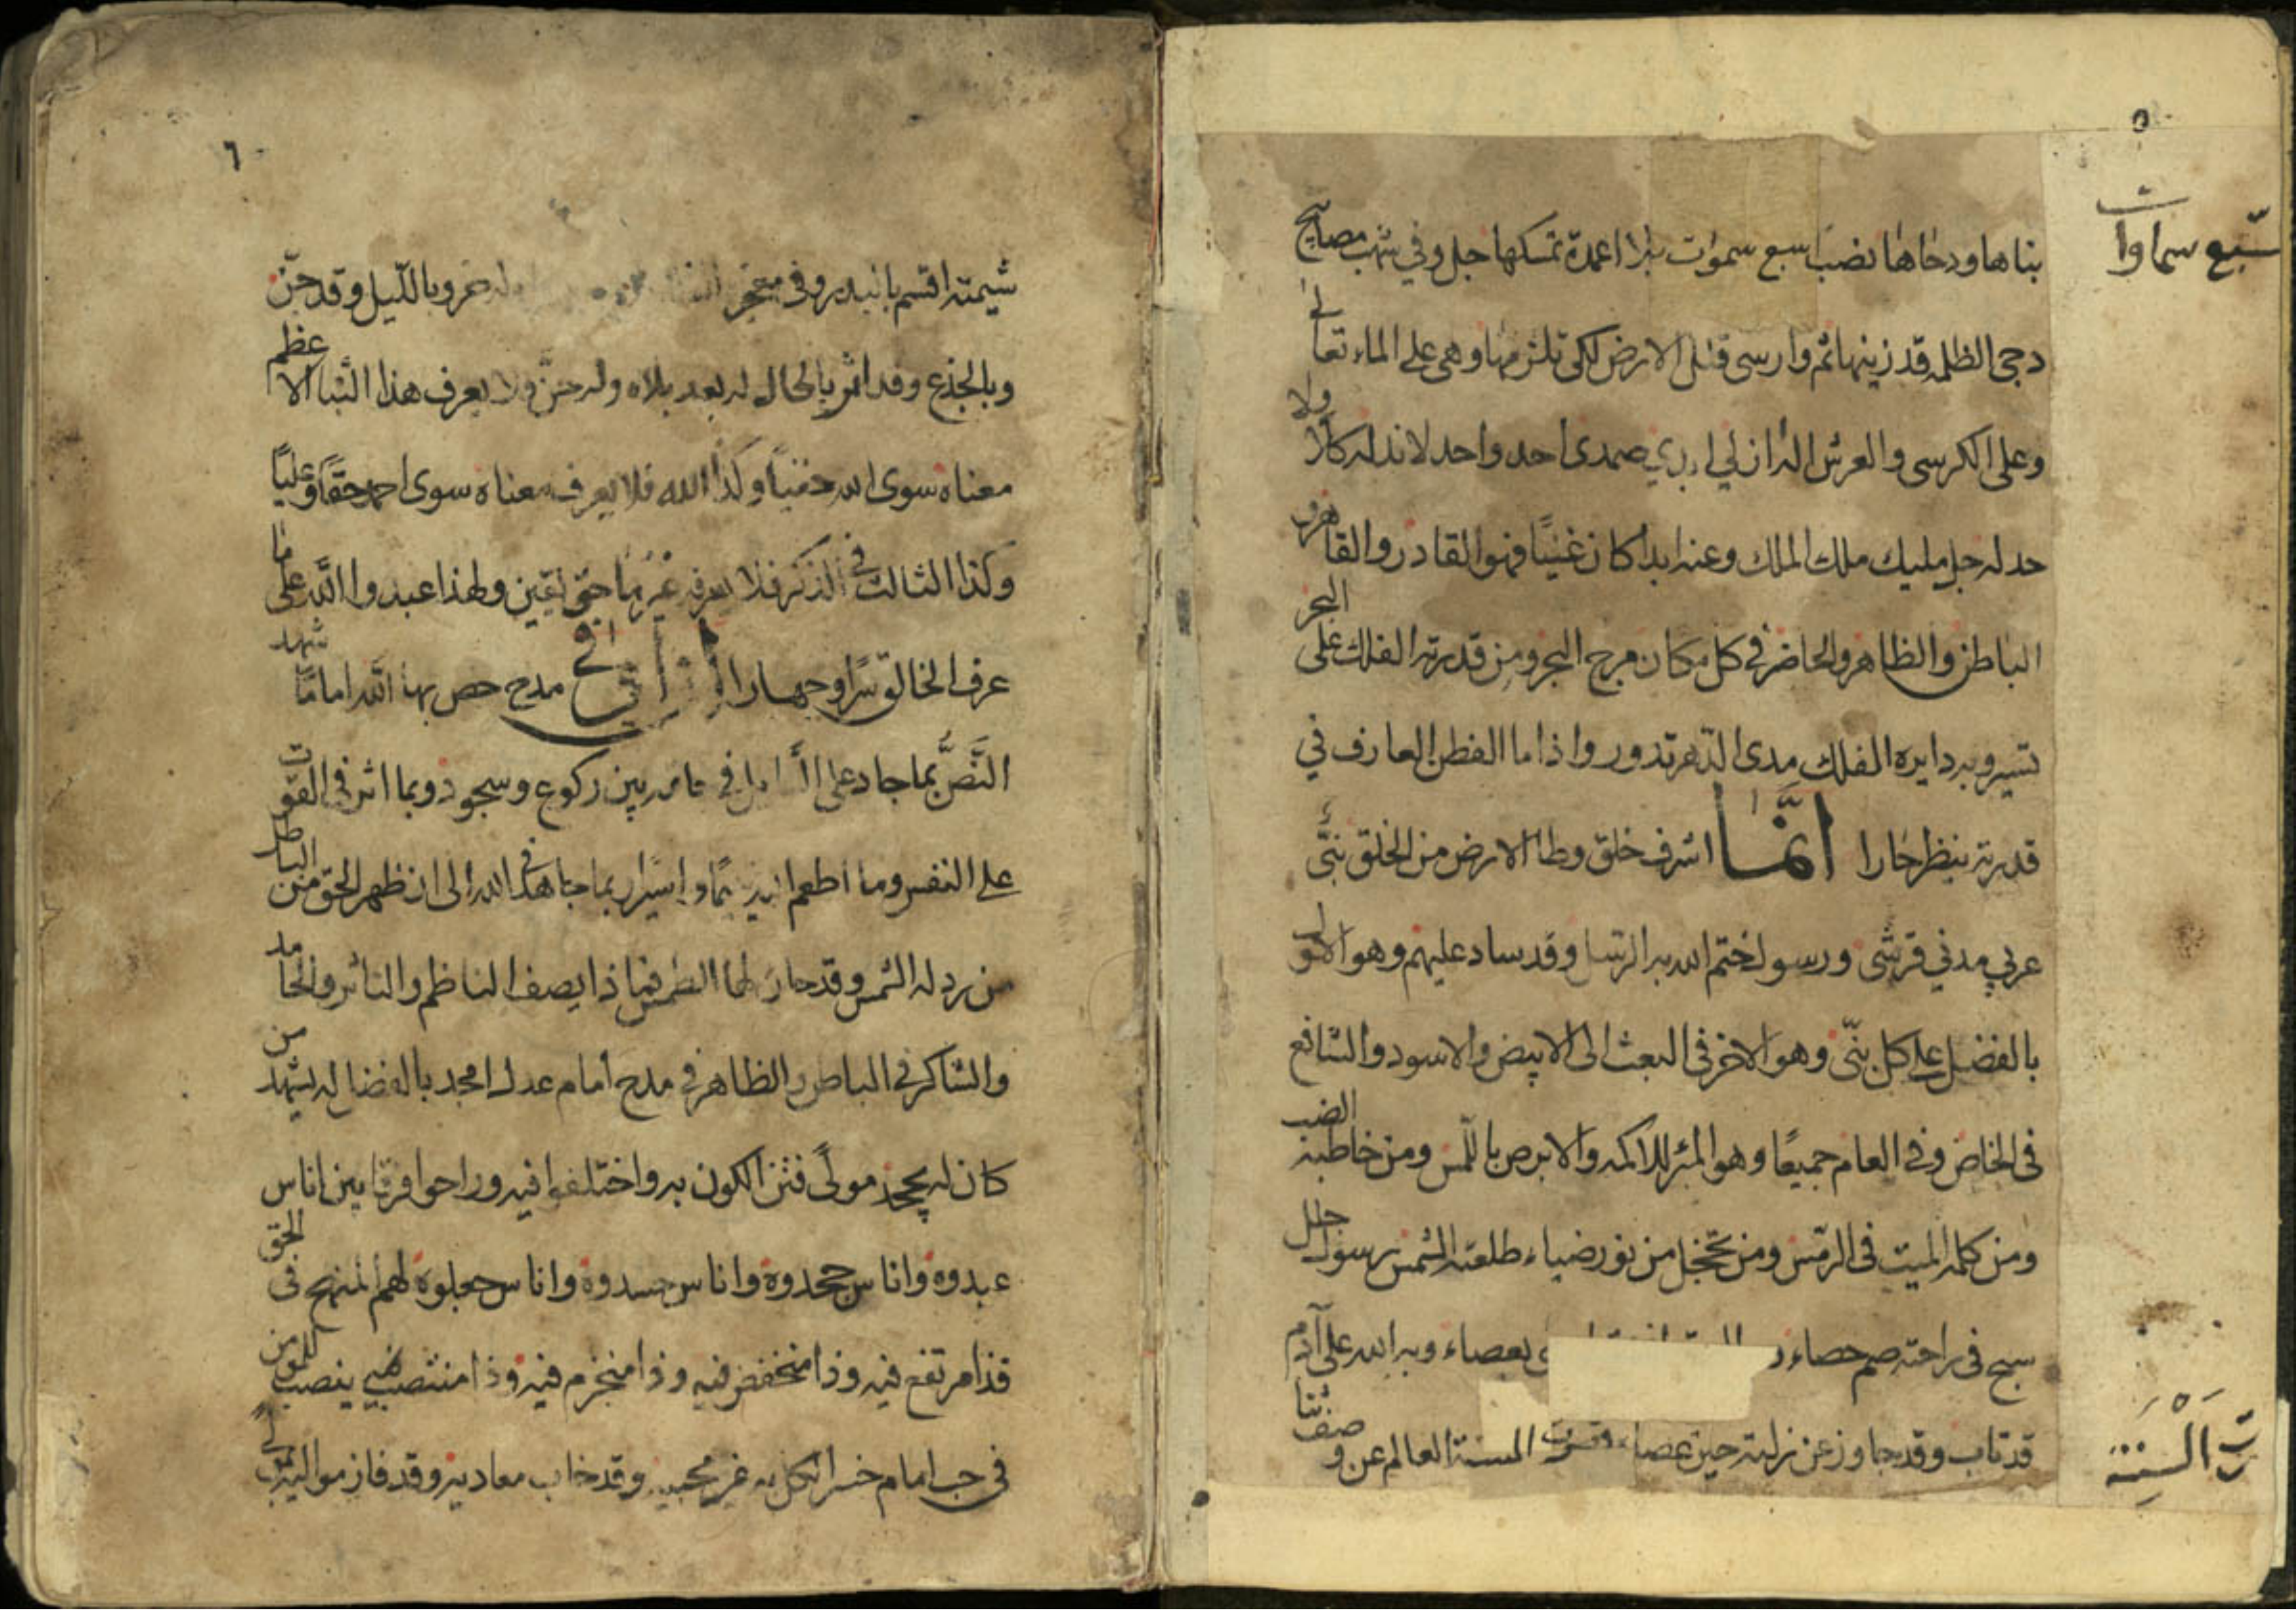 ٥
سبع سماوات
بناها ودحاها نصب سبع سموات بلا اعمدة تمسكها جل وفي شهب مصابيح
دجى الظلمه قد زينها ثم وارسى قلل الارض لكى تلزمها وهى على الماء تعالى
وعلى الكرسى والعرش الہ ازلي ابدي صمدى احد واحد لا ند له كلا ولا
حد له جل مليك ملك الملك وعنه ابدا كان غنيًا فهو القادر والقاهر
الباطن والظاهر والحاضر في كل مكان مرج البحر ومن قدرته الفلك على البحر
تسير وبه دايره الفلك مدى الدّهر تدور واذا ما الفطن العارف في
قدرته ينظر حارا انّما اشرف خلق وطا الارض من الخلق نبّى
عربي مدني قرشى ورسول ختم الله به الرّسل وقد ساد عليهم وهو الاول
بالفضل على كل نبّى وهو الاخر فى البعث الى الابيض والاسود والشافع
فى الخاص وفى العام جميعًا وهو المبرٔ للاكمه والابرص باللّمس ومن خاطبه الضب
ومن كلمه الميت فى الرّمس ومن تخجل من نور ضياء طلعته الشمس رسول جلل
سبح فى راحته صم حصاء بعصاء وبه الله على آدم
قد تاب وقد جاوز عن زلته حين عصاء السنة العالم عن وصف ثنا
رت السنة
٦
شيمته اقسم بالبدر وفى معجز وبالليل وقد جنّ
وبالجذع وقد اثر بالحال له بعد بلاه وله حنّ ولا يعرف هذا النّبا الاعظم
معناه سوى الله وكذا الله فلا يعرف معناه سوى احمد حقًا وعليًا
وكذا الثالث في الذكر فلا يعرفه غيرهما حق يقين ولهذا عبدوا اللّه على ما
عرف الخالق سرًا وجهارا مدح خص بها الله امامًا شهد
النّصّ بما جاد على السايل في خاتمه بين ركوع وسجود وبما اثر في القوت
على النفس وما اطعم يتيمًا واسيرا بما جاهد في الله الى ان ظهر الحق من الباطل
من رد له الشمس وقد حان لها الطمس فما ذا يصف الناظم والناثر والحامد
والشاكر في الباطن والظاهر في مدح امام عدل امجد بالفضال له يشهد من
كان له يجحد مولًى فتن الكون به واختلفوا فيه وراحوا فرقا بين اناس
عبدوه واناس جحدوه واناس حسدوه واناس جعلوه لهم المنهج فى الحق
فذا مرتفع فيه وذا منخفض فيه وذا منجزم فيه وذا منتصب ينصب للمؤمن
في حب امام خسر الكل به غير محبيه وقد خاب معاديه وقد فاز مواليه